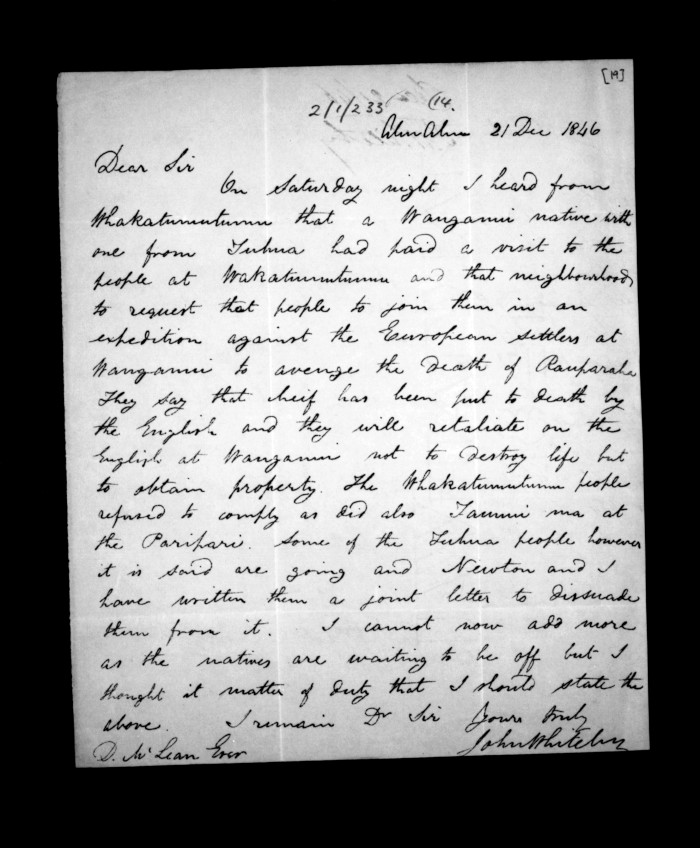 [19]
2/1/233 (14.
Ahu Ahu 21 Dec 1846
Dear Sir
On Saturday night I heard from
Whakatumutumu that a Wanganui native with
one from Tuhua had paid a visit to the
people at Wakatumutumu and that neighbourhood
to request that people to join them in an
expedition against the European settlers at
Wanganui to avenge the death of Rauparaha
They say that cheif has been put to death by
the English and they will retaliate on the
English at Wanganui not to destroy life but
to obtain property. The Whakatumutumu people
refused to comply as did also Taonui ma at
the Paripari. Some of the Tuhua people however
it is said are going and Newton and I
have written them a joint letter to dissuade
them from it. I cannot now add more
as the natives are waiting to be off but I
thought it matter of duty that I should state the
above. I remain Dr Sir yours truly
D. McLean Esqr John Whiteley